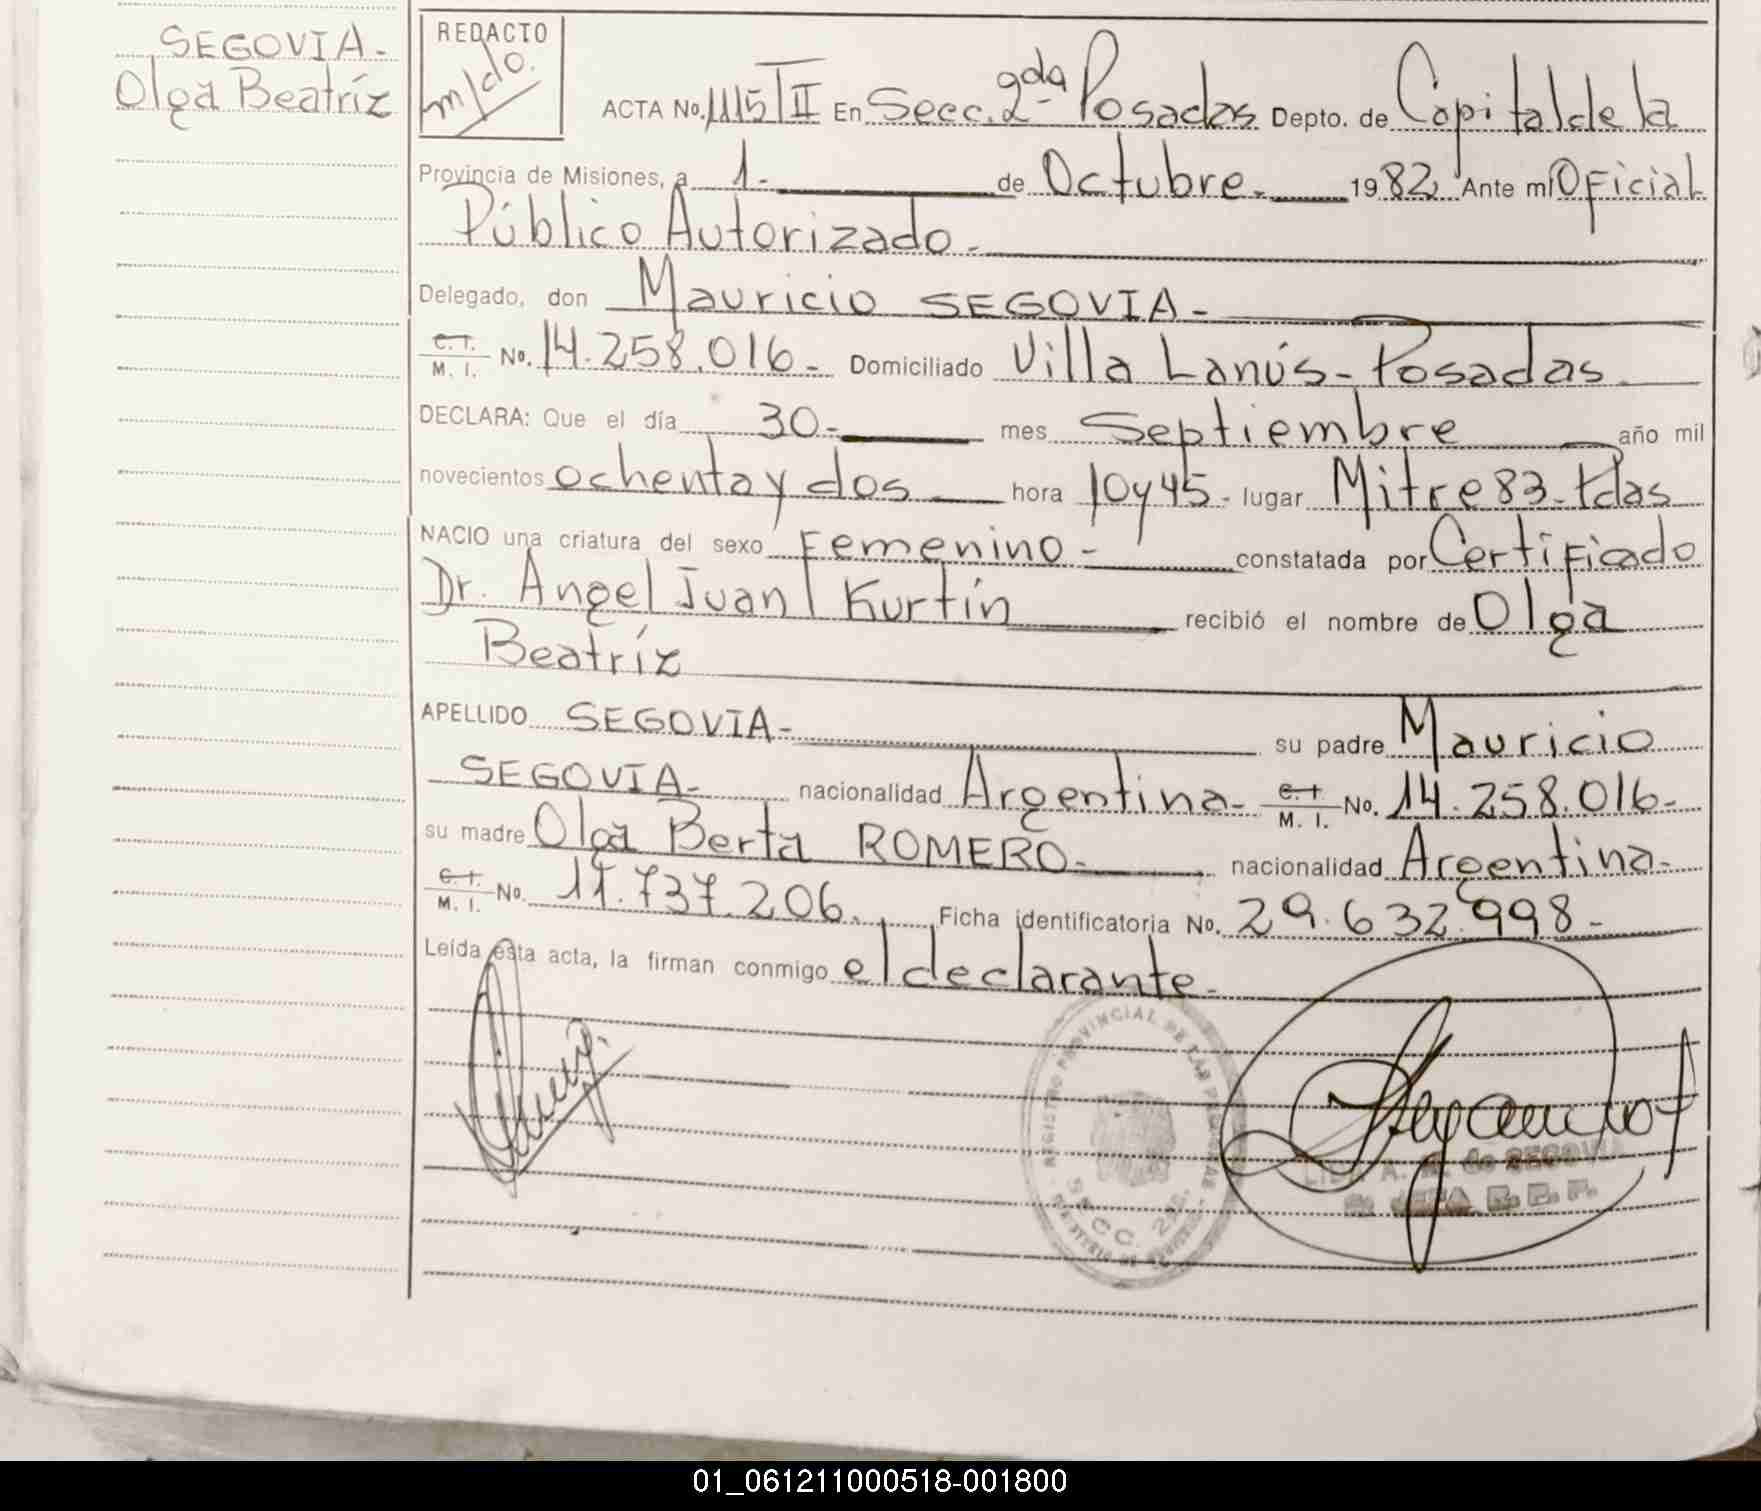 SEGOVIA-
Olga Beatríz
REDACTO
m/do.
ACTA No. 1115 TII En Secc. 2da Posadas Depto. de Capital de la
Provincia de Misiones, a 1.- de Octubre.- 1982 Ante mí Oficial
Público Autorizado.-
Delegado, don Mauricio SEGOVIA.-
C. I.
M. I. No. 14.258.016.- Domiciliado Villa Lanús- Posadas
DECLARA: Que el día 30.- mes Septiembre año mil
novecientos ochenta y dos hora 10 y 45.- lugar Mitre 83- Pdas
NACIO una criatura del sexo Femenino - constatada por Certificado
Dr. Angel Juan Kurtín recibió el nombre de Olga
Beatríz
APELLIDO SEGOVIA- su padre Mauricio
SEGOVIA- nacionalidad Argentina- C. I.
M. I. No. 14.258.016-
su madre Olga Berta ROMERO- nacionalidad Argentina-
C. I.
M. I. No. 11.737.206. Ficha identificatoria No. 29.632.998-
Leída esta acta, la firman conmigo el declarante.-
REGISTRO PROVINCIAL DE LAS PERSONAS
SECC. 2da.
de SEGOVIA
JEFA R. P. P.
01_061211000518-001800